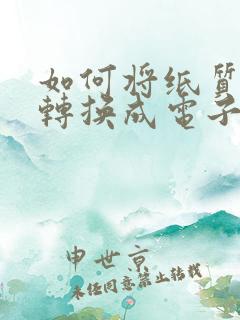 如何将纸質
轉換成電子
申世京
未经同意禁止转载